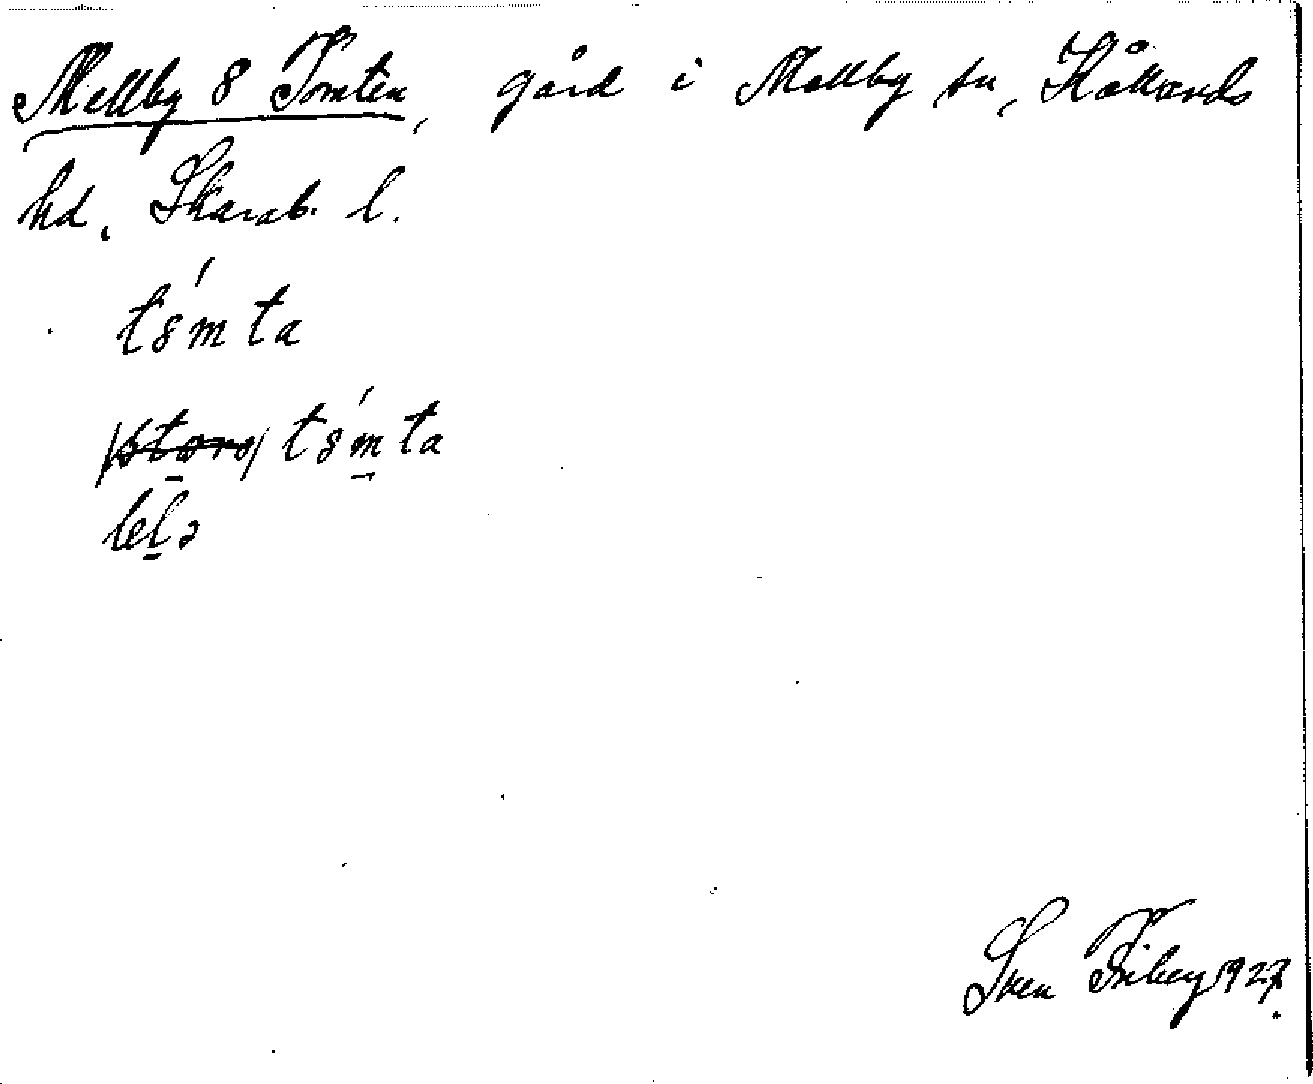 Mellby 8 Tomten, gård i Mellby sn, Kållands
hd. Skarab. l.
t8mta
t8mta
lelə
Sven Friberg 1927.